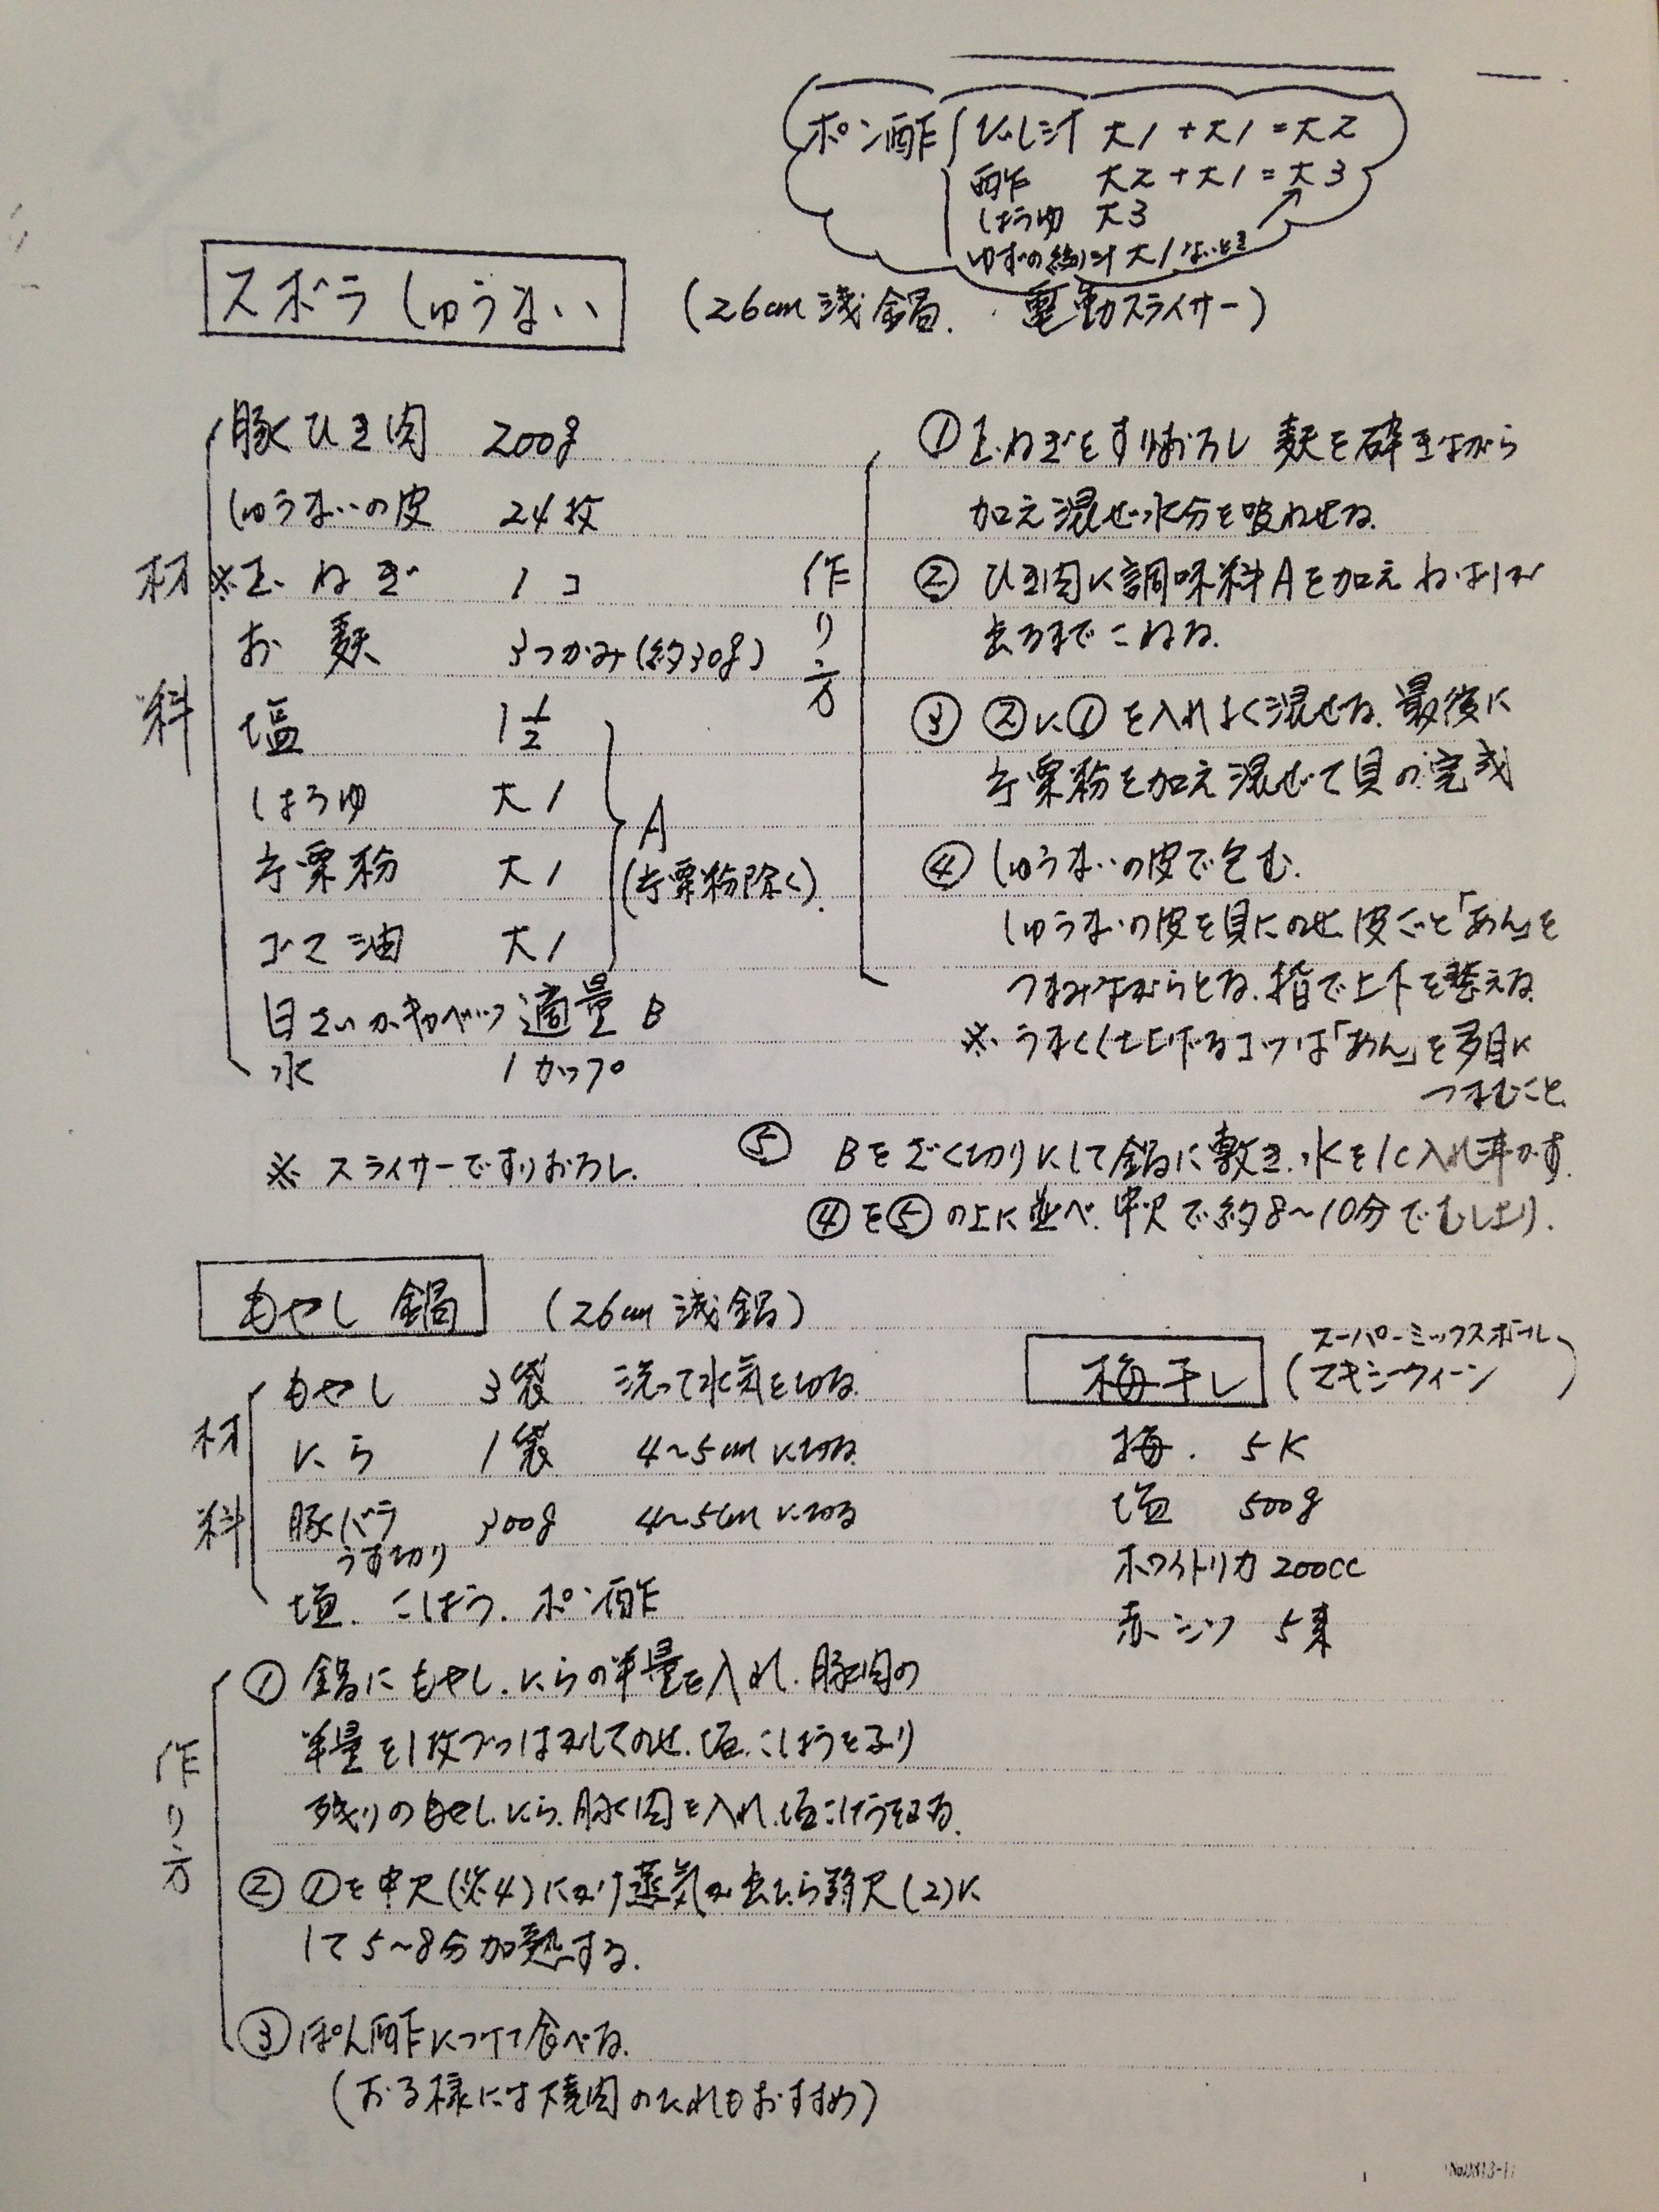 ポン酢 だし汁 大1+大1=大2
酢 大2+大1=大3
しょうゆ 大3
ゆずの絞り汁 大1ないとき
ズボラしゅうまい (26cm浅鍋. 電動スライサー)
材料
豚ひき肉 200g
しゅうまいの皮 24枚
※玉ねぎ 1コ
お麩 3つかみ(約30g)
塩 1 1/2
しょうゆ 大1
片栗粉 大1
ゴマ油 大1
A
(片栗粉除く).
白さいかキャベツ 適量 B
水 1カップ
※ スライサーですりおろし.
作り方
① 玉ねぎをすりおろし 麩を砕きながら
加え混ぜ水分を吸わせる.
② ひき肉に調味料Aを加え ねばりが
出るまでこねる.
③ ②に①を入れよく混ぜる. 最後に
片栗粉を加え混ぜて具の完成
④ しゅうまいの皮で包む.
しゅうまいの皮を具にのせ皮ごと「あん」を
つまみながらとる. 指で上下を整える.
※ うまく仕上げるコツは「あん」を多目に
つまむこと.
⑤ Bをざく切りにして鍋に敷き. 水を1C入れ沸かす.
④を⑤の上に並べ. 中火で約8〜10分でむし上り.
もやし鍋 (26cm浅鍋)
材料
もやし 3袋 洗って水気を切る.
にら 1袋 4〜5cmに切る.
豚バラ 300g 4〜5cmに切る
うす切り
塩. こしょう. ポン酢
作り方
① 鍋にもやし. にらの半量を入れ. 豚肉の
半量を1枚づつはがしてのせ. 塩. こしょうをふり
残りのもやし. にら. 豚肉を入れ. 塩こしょうをする.
② ①を中火(※4)にかけ蒸気が出たら弱火(2)に
して5〜8分加熱する.
③ ぽん酢につけて食べる.
(お子様には焼肉のたれもおすすめ)
梅干し (スーパーミックスボール
マキシークィーン)
梅. 5K
塩 500g
ホワイトリカ 200cc
赤シソ 5束